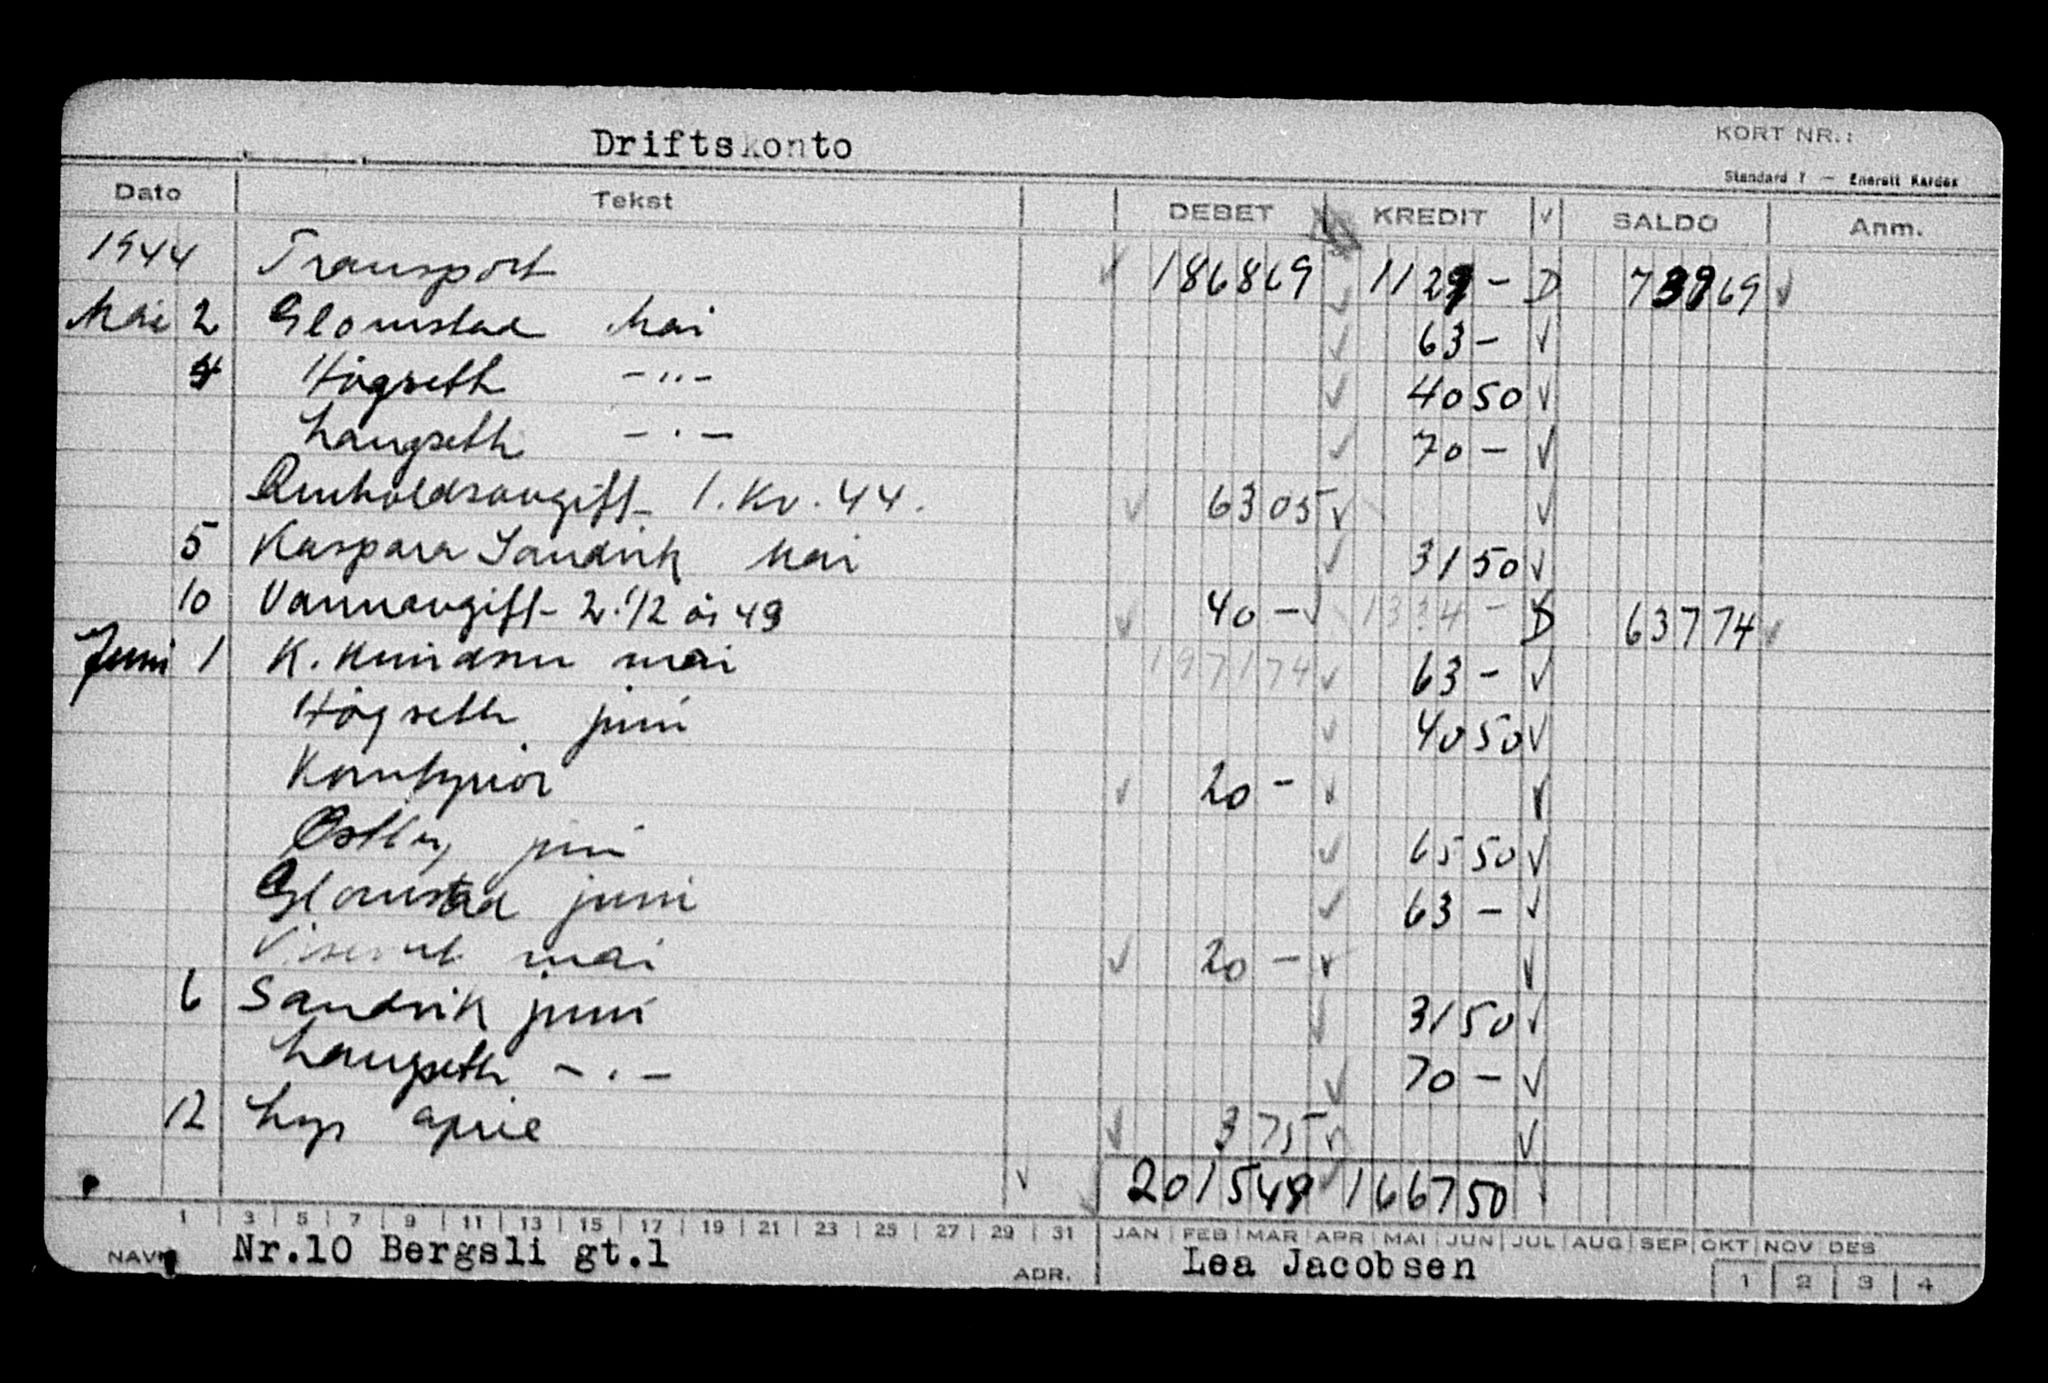 Driftskonto
KORT NR.:
Standard 7 — Enerett Kardex
Dato Tekst DEBET KREDIT √ SALDO Anm.
1944 Transport 186869 1129 - D 73969
Mai 2 Glomstad Mai 63 -
4 Högseth -"- 4050
Langseth - " - 70 -
Renholdsavgift 1. Kv. 44. 6305
5 Kaspara Sandvik Mai 3150
10 Vannavgift 2. 1/2 år 43 40 - 1334 - D 63774
Juni 1 K. Knudsen mai 197174 63 -
Högseth juni 4050
20 -
Østby juni 6550
Glomstad juni 63 -
Viservel mai 20 -
6 Sandvik juni 3150
Langseth - " - 70 -
12 Lys april 375
201549 166750
1 3 5 7 9 11 13 15 17 19 21 23 25 27 29 31 JAN FEB MAR APR MAI JUN JUL AUG SEP OKT NOV DES
NAVN Nr.10 Bergsli gt.1 ADR. Lea Jacobsen 1 2 3 4